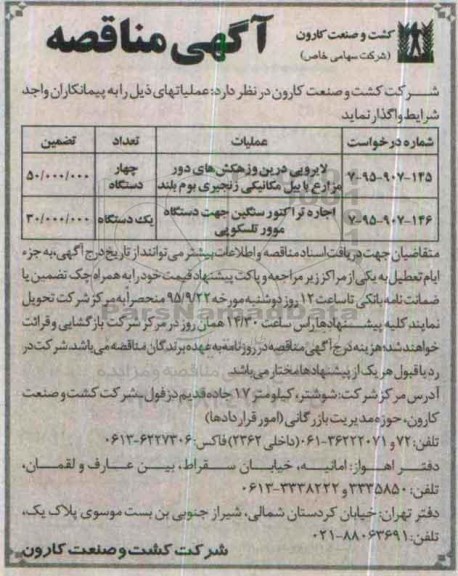 آگهی مناقصه
کشت و صنعت کارون
(شرکت سهامی خاص)
شرکت کشت و صنعت کارون در نظر دارد: عملیاتهای ذیل را به پیمانکاران واجد
شرایط واگذار نماید
شماره درخواست عملیات تعداد تضمین
۷-۹۵-۹۰۷-۱۴۵ لایروبی درین و زهکش های دور مزارع با بیل مکانیکی زنجیری بوم بلند چهار دستگاه ۵۰/۰۰۰/۰۰۰
۷-۹۵-۹۰۷-۱۴۶ اجاره تراکتور سنگین جهت دستگاه موور تلسکوپی یک دستگاه ۳۰/۰۰۰/۰۰۰
متقاضیان جهت دریافت اسناد مناقصه و اطلاعات بیشتر می توانند از تاریخ درج آگهی، به جزء
ایام تعطیل به یکی از مراکز زیر مراجعه و پاکت پیشنهاد قیمت خود را به همراه چک تضمین یا
ضمانت نامه بانکی تا ساعت ۱۲ روز دوشنبه مورخه ۹۵/۹/۲۲ منحصراً به مرکز شرکت تحویل
نمایند کلیه پیشنهادها راس ساعت ۱۴/۳۰ همان روز در مرکز شرکت بازگشایی و قرائت
خواهند شد؛ هزینه درج آگهی مناقصه در روزنامه به عهده برندگان مناقصه می باشد. شرکت در
رد یا قبول هر یک از پیشنهادها مختار می باشد
آدرس مرکز شرکت: شوشتر، کیلومتر ۱۷ جاده قدیم دزفول - شرکت کشت و صنعت
کارون، حوزه مدیریت بازرگانی (امور قراردادها)
تلفن: ۷۲ و ۳۶۲۲۲۰۷۱-۰۶۱ (داخلی ۲۳۶۲) فاکس: ۶۲۲۷۳۰۶-۰۶۱۳
دفتر اهواز: امانیه، خیابان سقراط، بین عارف و لقمان،
تلفن: ۳۳۳۵۸۵۰ و ۳۳۳۸۲۲۲-۰۶۱۳
دفتر تهران: خیابان کردستان شمالی، شیراز جنوبی بن بست موسوی پلاک یک،
تلفن: ۸۸۰۶۳۶۹۱-۰۲۱
شرکت کشت و صنعت کارون
ParsNamadData